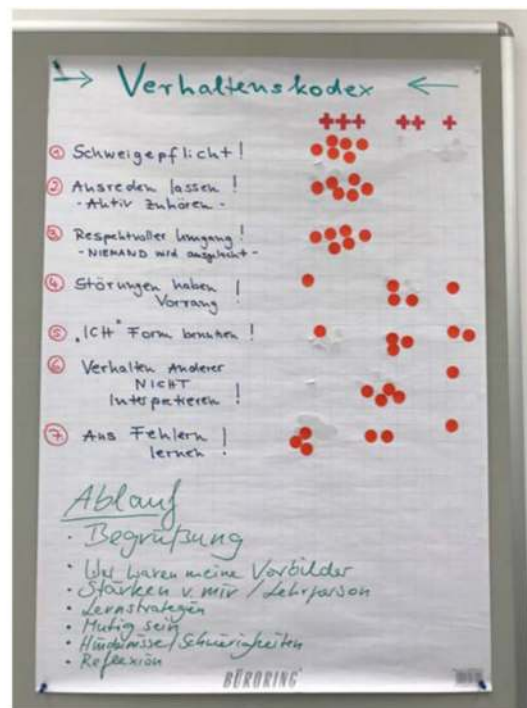 → Verhaltenskodex ←
+++ ++ +
① Schweigepflicht!
② Ausreden lassen!
- Aktiv zuhören -
③ Respektvoller Umgang!
- NIEMAND wird ausgelacht -
④ Störungen haben
Vorrang!
⑤ "ICH" Form benutzen!
⑥ Verhalten Anderer
NICHT
Interpretieren!
⑦ Aus Fehlern
lernen!
Ablauf
• Begrüßung
• Wer waren meine Vorbilder
• Stärken v. mir / Lehrperson
• Lernstrategien
• Mutig sein
• Hindernisse/Schwierigkeiten
• Reflexion
BÜRORING